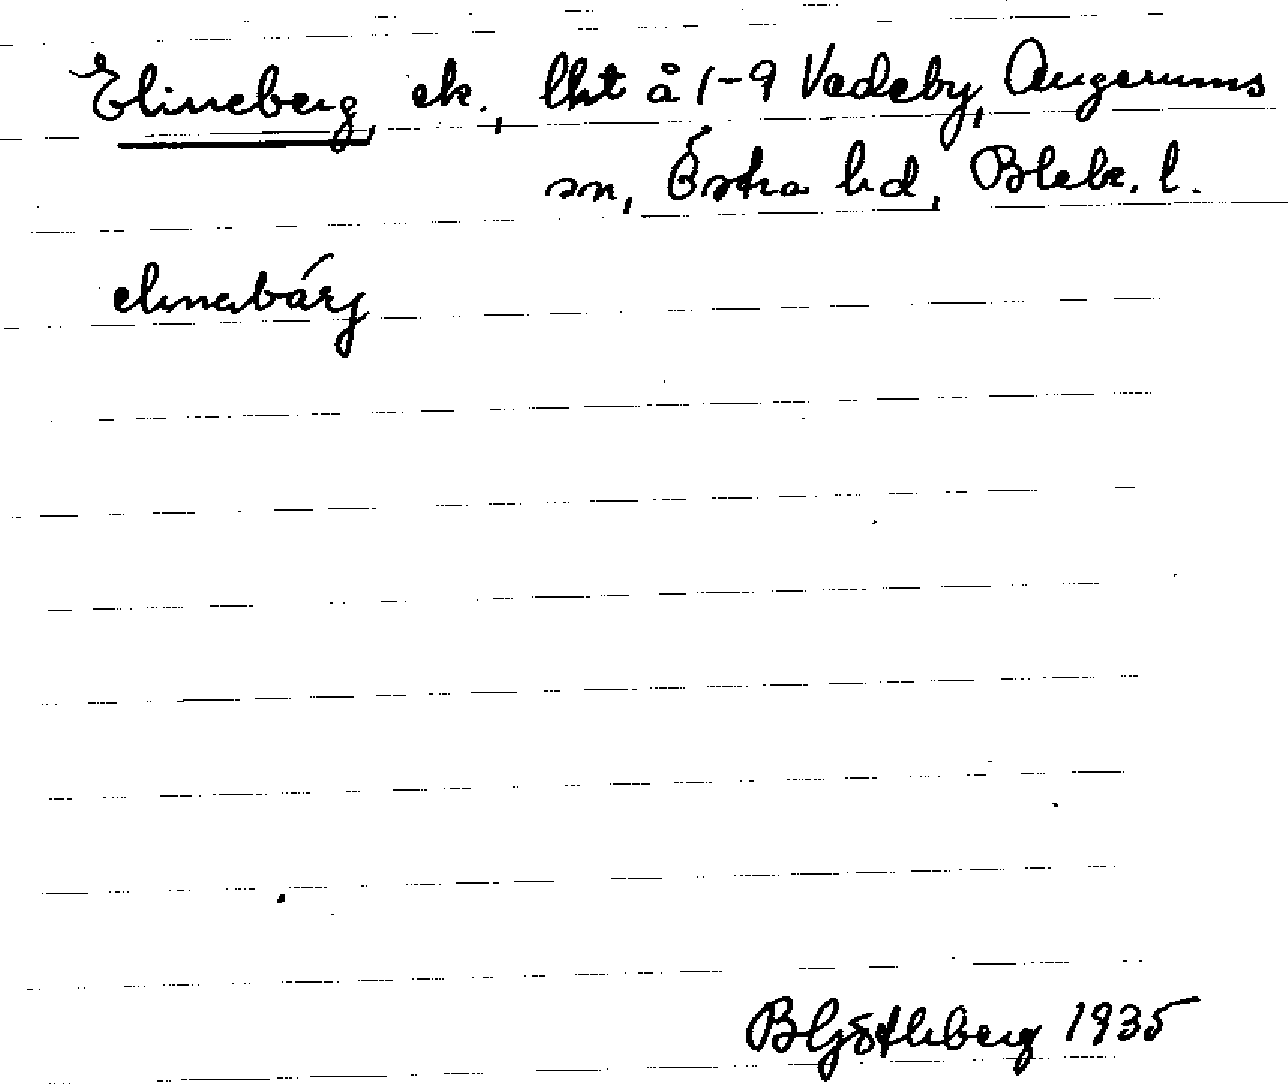 Elineberg, ek., lht å 1-9 Vedeby, Augerums
sn, Östra hd, Blek. l.
elinabárg
B Götlberg 1935